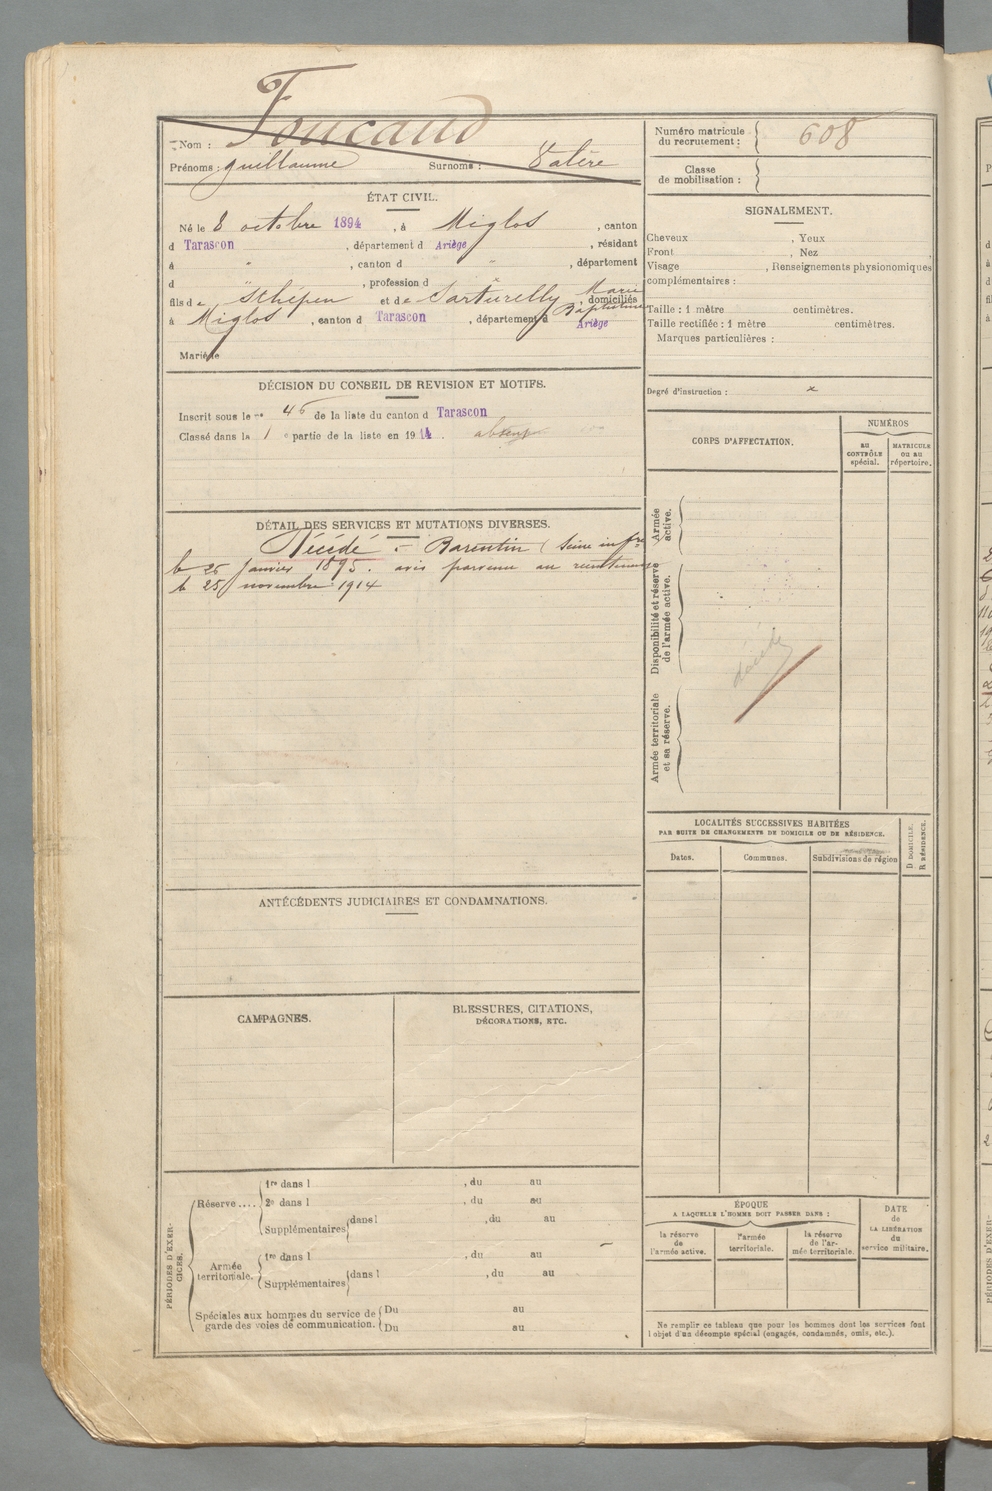 Foucaud
Nom :
Prénoms : guillaume Surnoms : Valère
ÉTAT CIVIL.
Né le 8 octobre 1894, à Miglos, canton
d Tarascon, département d Ariège, résidant
à " , canton d " , département
d , profession d
fils de Schépen et de Sarturelly Marie Baptistine, domiciliés
à Miglos, canton d Tarascon, département d Ariège
Marié le
DÉCISION DU CONSEIL DE REVISION ET MOTIFS.
Inscrit sous le no 46 de la liste du canton d Tarascon
Classé dans la 1 e partie de la liste en 1914. absent
DÉTAIL DES SERVICES ET MUTATIONS DIVERSES.
Décédé à Barentin (Seine infre
le 26 janvier 1895. avis parvenu au recrutement
le 25 novembre 1914
ANTÉCÉDENTS JUDICIAIRES ET CONDAMNATIONS.
CAMPAGNES.
BLESSURES, CITATIONS,
DÉCORATIONS, ETC.
PÉRIODES D'EXER-
CICES.
Réserve ....
1re dans l , du au
2e dans l , du au
Supplémentaires dans l , du au
Armée
territoriale.
1re dans l , du au
Supplémentaires dans l , du au
Spéciales aux hommes du service de
garde des voies de communication.
Du au
Du au
Numéro matricule
du recrutement : 608
Classe
de mobilisation :
SIGNALEMENT.
Cheveux , Yeux
Front , Nez
Visage , Renseignements physionomiques
complémentaires :
Taille : 1 mètre centimètres.
Taille rectifiée : 1 mètre centimètres.
Marques particulières :
Degré d'instruction : x
CORPS D'AFFECTATION.
NUMÉROS
AU
CONTRÔLE
spécial.
MATRICULE
ou au
répertoire.
Armée
active.
Disponibilité et réserve
de l'armée active.
décédé
Armée territoriale
et sa réserve.
LOCALITÉS SUCCESSIVES HABITÉES
PAR SUITE DE CHANGEMENTS DE DOMICILE OU DE RÉSIDENCE.
Dates.
Communes.
Subdivisions de région
D DOMICILE.
R RÉSIDENCE.
ÉPOQUE
A LAQUELLE L'HOMME DOIT PASSER DANS :
la réserve
de
l'armée active.
l'armée
territoriale.
la réserve
de l'ar-
mée territoriale.
DATE
de
LA LIBÉRATION
du
service militaire.
Ne remplir ce tableau que pour les hommes dont les services font
l'objet d'un décompte spécial (engagés, condamnés, omis, etc.).